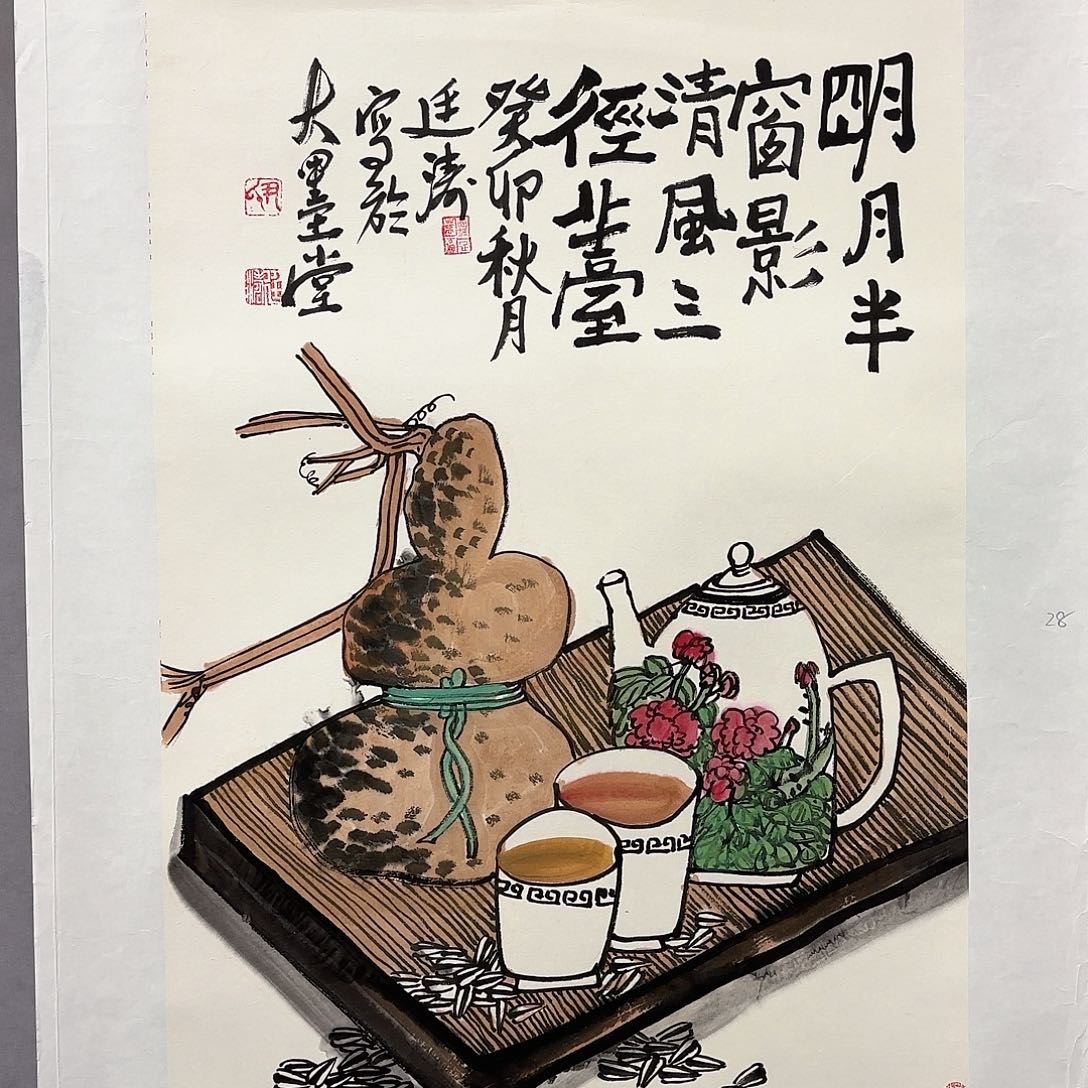 明月半
窗影
清風三
徑
癸卯秋月
廷濤
寫於
大墨堂
28